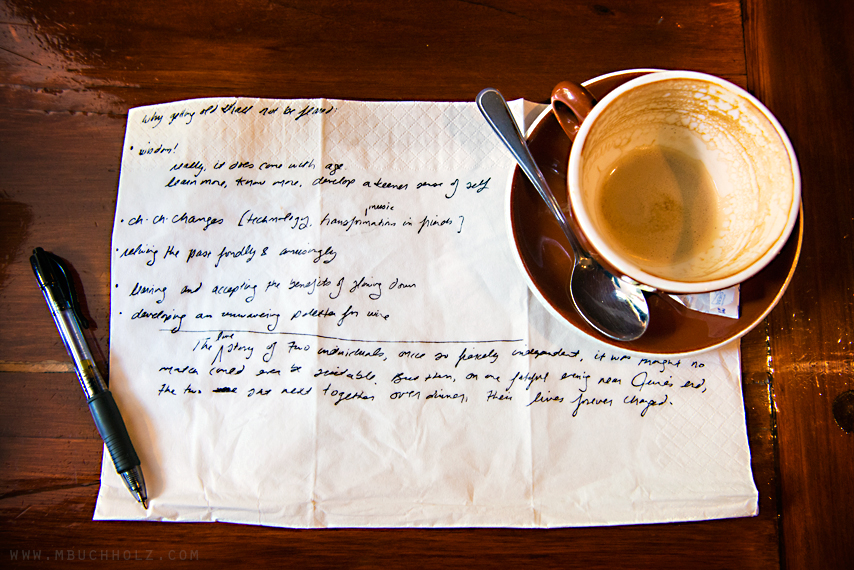 why getting old shall not be feared:
• wisdom!
really, it does come with age.
learn more, know more, develop a keener sense of self
• ch-ch-changes [technology, music, transformation in friends]
• reliving the past fondly & amusingly
• learning and accepting the benefits of slowing down
• developing an unwavering palette for wine
The love story of two individuals, once so fiercely independent, it was thought no
match could ever be suitable. But then, on one fateful evening near June's end,
the two sat next together over dinner, their lives forever changed.
WWW.MBUCHHOLZ.COM